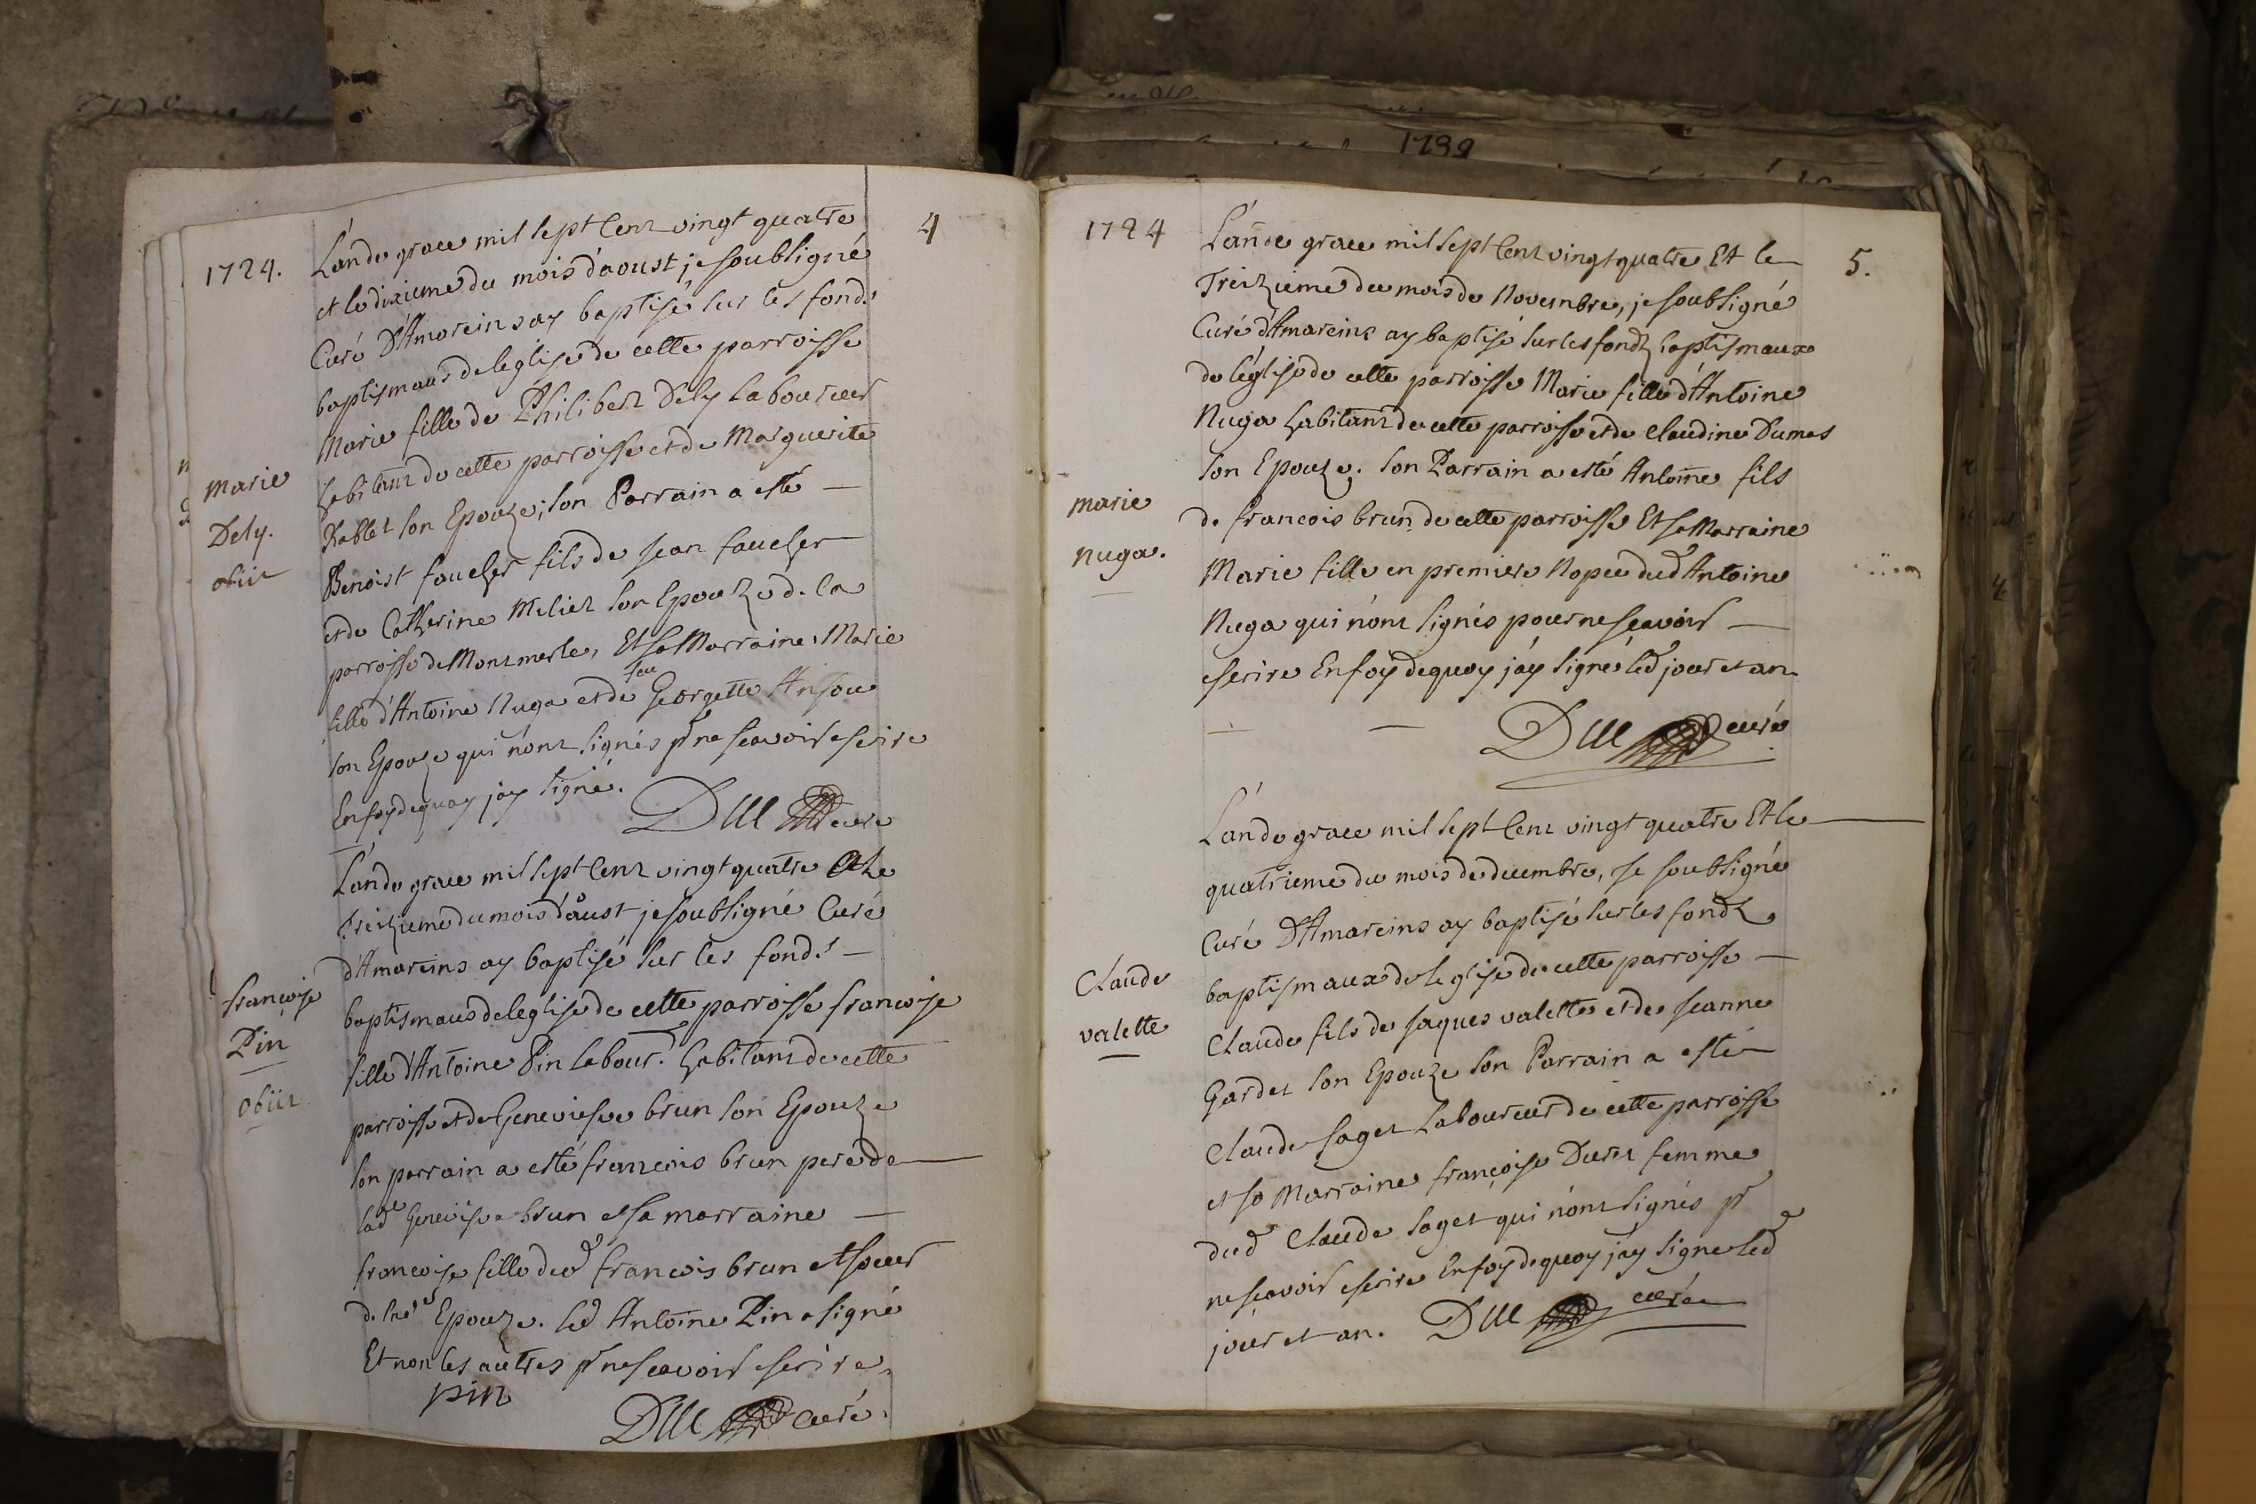 1724.
4
L'an de grace mil sept cent vingt quatre
et le dixieme du mois d'aoust je soubsigné
Curé D'Amareins ay baptisé sur les fonds
baptismaus de leglise de cette parroisse
Marie fille de Philibert Dely laboureur
habitant de cette parroisse et de Marguerite
Rablet son Epouze; son Parrain a esté —
Benoist faucher fils de Jean faucher
et de Catherine Meliet son Epouze de la
parroisse de Montmerle, Et sa Marraine Marie
fille d'Antoine Nuga et de feu Georgette Anjou
son Epouze qui n'ont signés pr ne scavoir escrire
En foy de quoy jay signé.
Marie
Dely.
obiit
curé
L'an de grace mil sept cent vingt quatre Et le
treizieme du mois d'aoust je soubsigné Curé
d'Amareins ay baptisé sur les fonds —
baptismaus de leglise de cette parroisse francoise
fille d'Antoine Pin labour. habitant de cette
parroisse et de Genevieve brun son Epouze
son parrain a esté francois brun pere de —
lade Genevieve brun et sa marraine —
francoise fille dud francois brun et soeur
de lade Epouze. led Antoine Pin a signé
Et non les autres pr ne scavoir escrire.
françoise
Pin
obiit
pin
curé.
1724
5.
L'an de grace mil sept cent vingt quatre Et le —
Treizieme du mois de Novembre, je soubsigné
Curé d'Amareins ay baptisé sur les fondz baptismaux
de léglise de cette parroisse Marie fille d'Antoine
Nuga habitant de cette parroisse et de Claudine Dumas
son Epouze. son Parrain a esté Antoine fils
de francois brun de cette parroisse Et sa Marraine
Marie fille en premiere Nopce dud Antoine
Nuga qui n'ont signés pour ne scavoir —
escrire En foy de quoy j'ay signé led jour et an
marie
nuga.
curé
L'an de grace mil sept cent vingt quatre Et le —
quatrieme du mois de decembre, je soubsigné
Curé D'Amareins ay baptisé sur les fondz
baptismaux de leglise de cette parroisse —
Claude fils de Jaques valette et de Jeanne
Gardet son Epouze son Parrain a esté
Claude saget Laboureur de cette parroisse
et sa Marraine françoise Duret femme
dud Claude saget qui n'ont signés pr
ne scavoir escrire En foy de quoy jay signe led
jour et an.
Claude
valette
curé
1739